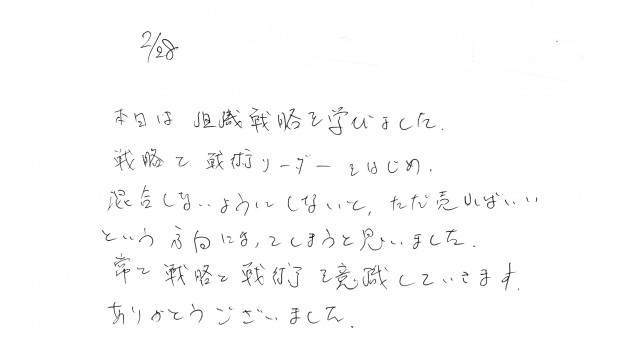 2/28
本日は組織戦略を学びました.
戦略と戦術リーダーをはじめ.
混合しないようにしないと,ただ売ればいい
という方向になってしまうと思いました.
常に戦略と戦術を意識していきます.
ありがとうございました.